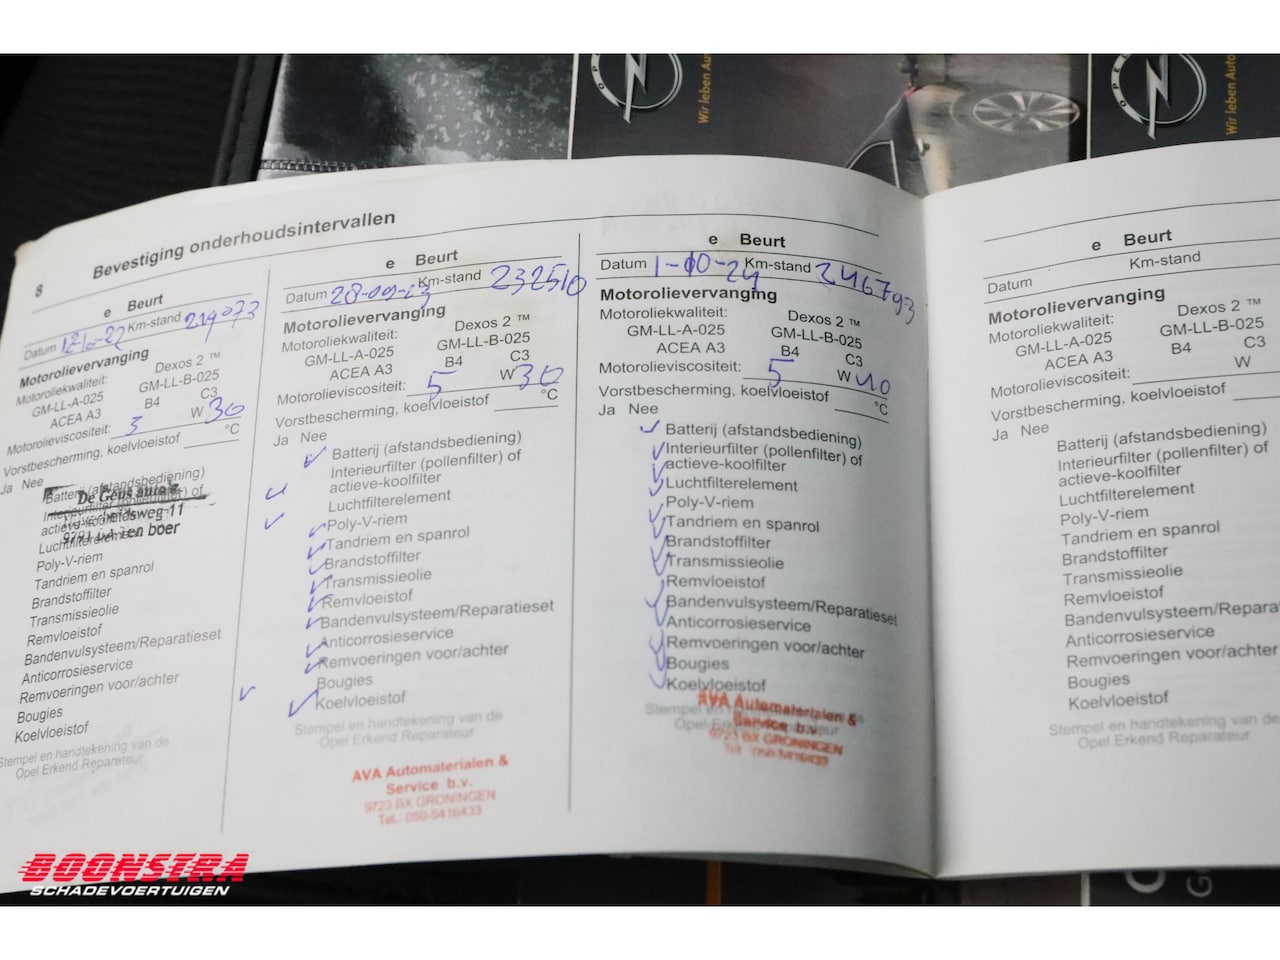 OPEL
Wir leben Auto
OPEL
Wir leben Auto
8
Bevestiging onderhoudsintervallen
e Beurt
Datum 12-10-22 Km-stand 219073
Motorolievervanging
Motoroliekwaliteit: Dexos 2 ™
GM-LL-A-025 GM-LL-B-025
ACEA A3 B4 C3
Motorolieviscositeit: 5 W 30
Vorstbescherming, koelvloeistof °C
Ja Nee
Batterij (afstandsbediening)
Interieurfilter (pollenfilter) of
actieve-koolfilter
Luchtfilterelement
Poly-V-riem
Tandriem en spanrol
Brandstoffilter
Transmissieolie
Remvloeistof
Bandenvulsysteem/Reparatieset
Anticorrosieservice
Remvoeringen voor/achter
Bougies
Koelvloeistof
Stempel en handtekening van de
Opel Erkend Reparateur
De Geus auto's
weg 11
Ten boer
e Beurt
Datum 28-09-23 Km-stand 232510
Motorolievervanging
Motoroliekwaliteit: Dexos 2 ™
GM-LL-A-025 GM-LL-B-025
ACEA A3 B4 C3
Motorolieviscositeit: 5 W 30
Vorstbescherming, koelvloeistof °C
Ja Nee
Batterij (afstandsbediening)
Interieurfilter (pollenfilter) of
actieve-koolfilter
Luchtfilterelement
Poly-V-riem
Tandriem en spanrol
Brandstoffilter
Transmissieolie
Remvloeistof
Bandenvulsysteem/Reparatieset
Anticorrosieservice
Remvoeringen voor/achter
Bougies
Koelvloeistof
Stempel en handtekening van de
Opel Erkend Reparateur
AVA Automaterialen &
Service b.v.
9723 BX GRONINGEN
Tel.: 050-5416433
e Beurt
Datum 1-10-24 Km-stand 246793
Motorolievervanging
Motoroliekwaliteit: Dexos 2 ™
GM-LL-A-025 GM-LL-B-025
ACEA A3 B4 C3
Motorolieviscositeit: 5 W 40
Vorstbescherming, koelvloeistof °C
Ja Nee
Batterij (afstandsbediening)
Interieurfilter (pollenfilter) of
actieve-koolfilter
Luchtfilterelement
Poly-V-riem
Tandriem en spanrol
Brandstoffilter
Transmissieolie
Remvloeistof
Bandenvulsysteem/Reparatieset
Anticorrosieservice
Remvoeringen voor/achter
Bougies
Koelvloeistof
Stempel en handtekening van de
Opel Erkend Reparateur
AVA Automaterialen &
Service b.v.
9723 BX GRONINGEN
Tel.: 050-5416433
e Beurt
Datum Km-stand
Motorolievervanging
Motoroliekwaliteit: Dexos 2 ™
GM-LL-A-025 GM-LL-B-025
ACEA A3 B4 C3
Motorolieviscositeit: W
Vorstbescherming, koelvloeistof °C
Ja Nee
Batterij (afstandsbediening)
Interieurfilter (pollenfilter) of
actieve-koolfilter
Luchtfilterelement
Poly-V-riem
Tandriem en spanrol
Brandstoffilter
Transmissieolie
Remvloeistof
Bandenvulsysteem/Repara
Anticorrosieservice
Remvoeringen voor/achter
Bougies
Koelvloeistof
Stempel en handtekening van de
Opel Erkend Reparateur
BOONSTRA
SCHADEVOERTUIGEN